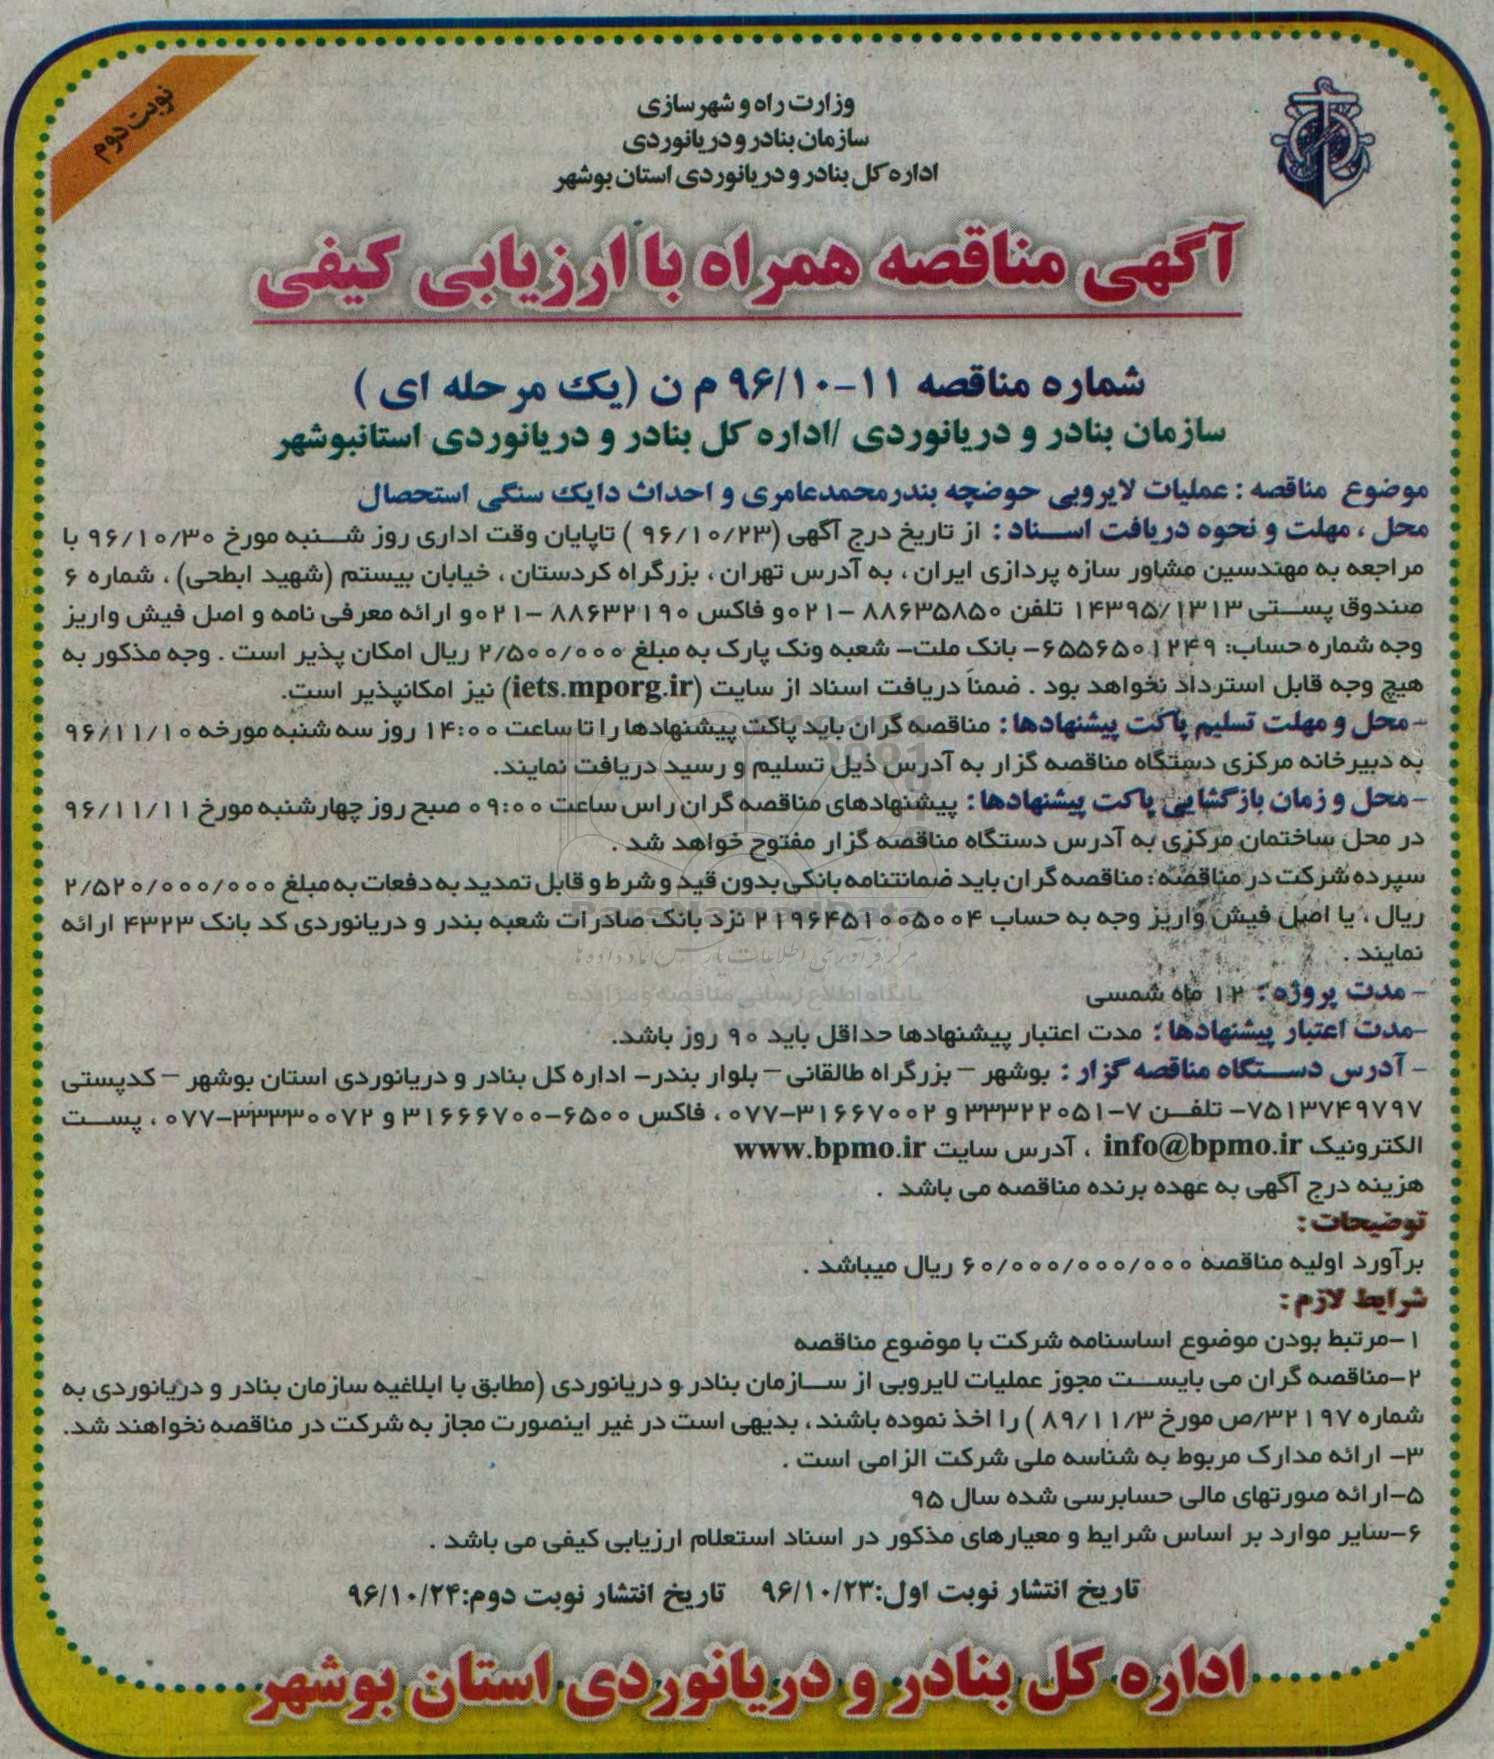 نوبت دوم
وزارت راه و شهرسازی
سازمان بنادر و دریانوردی
اداره کل بنادر و دریانوردی استان بوشهر
آگهی مناقصه همراه با ارزیابی کیفی
شماره مناقصه ۱۱-۹۶/۱۰ م ن (یک مرحله ای )
سازمان بنادر و دریانوردی /اداره کل بنادر و دریانوردی استانبوشهر
موضوع مناقصه : عملیات لایروبی حوضچه بندرمحمدعامری و احداث دایک سنگی استحصال
محل ، مهلت و نحوه دریافت اسناد : از تاریخ درج آگهی (۹۶/۱۰/۲۳ ) تاپایان وقت اداری روز شنبه مورخ ۹۶/۱۰/۳۰ با
مراجعه به مهندسین مشاور سازه پردازی ایران ، به آدرس تهران ، بزرگراه کردستان ، خیابان بیستم (شهید ابطحی) ، شماره ۶
صندوق پستی ۱۴۳۹۵/۱۳۱۳ تلفن ۸۸۶۳۵۸۵۰ -۰۲۱و فاکس ۸۸۶۳۲۱۹۰ -۰۲۱و ارائه معرفی نامه و اصل فیش واریز
وجه شماره حساب: ۶۵۵۶۵۰۱۲۴۹- بانک ملت- شعبه ونک پارک به مبلغ ۲/۵۰۰/۰۰۰ ریال امکان پذیر است . وجه مذکور به
هیچ وجه قابل استرداد نخواهد بود . ضمناً دریافت اسناد از سایت (iets.mporg.ir) نیز امکانپذیر است.
- محل و مهلت تسلیم پاکت پیشنهادها : مناقصه گران باید پاکت پیشنهادها را تا ساعت ۱۴:۰۰ روز سه شنبه مورخه ۹۶/۱۱/۱۰
به دبیرخانه مرکزی دستگاه مناقصه گزار به آدرس ذیل تسلیم و رسید دریافت نمایند.
- محل و زمان بازگشایی پاکت پیشنهادها : پیشنهادهای مناقصه گران راس ساعت ۰۹:۰۰ صبح روز چهارشنبه مورخ ۹۶/۱۱/۱۱
در محل ساختمان مرکزی به آدرس دستگاه مناقصه گزار مفتوح خواهد شد .
سپرده شرکت در مناقصه : مناقصه گران باید ضمانتنامه بانکی بدون قید و شرط و قابل تمدید به دفعات به مبلغ ۲/۵۲۰/۰۰۰/۰۰۰
ریال ، یا اصل فیش واریز وجه به حساب ۲۱۹۶۴۵۱۰۰۵۰۰۴ نزد بانک صادرات شعبه بندر و دریانوردی کد بانک ۴۳۲۳ ارائه
نمایند .
ParsNamadData
مرکز فرآوری اطلاعات پارس نماد داده ها
پایگاه اطلاع رسانی مناقصه و مزایده
- مدت پروژه : ۱۲ ماه شمسی
-مدت اعتبار پیشنهادها : مدت اعتبار پیشنهادها حداقل باید ۹۰ روز باشد.
- آدرس دستگاه مناقصه گزار : بوشهر – بزرگراه طالقانی – بلوار بندر- اداره کل بنادر و دریانوردی استان بوشهر – کدپستی
۷۵۱۳۷۴۹۷۹۷- تلفن ۷-۳۳۳۲۲۰۵۱ و ۳۱۶۶۷۰۰۲-۰۷۷ ، فاکس ۶۵۰۰-۳۱۶۶۶۷۰۰ و ۳۳۳۳۰۰۷۲-۰۷۷ ، پست
الکترونیک info@bpmo.ir ، آدرس سایت www.bpmo.ir
هزینه درج آگهی به عهده برنده مناقصه می باشد .
توضیحات :
برآورد اولیه مناقصه ۶۰/۰۰۰/۰۰۰/۰۰۰ ریال میباشد .
شرایط لازم :
۱-مرتبط بودن موضوع اساسنامه شرکت با موضوع مناقصه
۲-مناقصه گران می بایست مجوز عملیات لایروبی از سازمان بنادر و دریانوردی (مطابق با ابلاغیه سازمان بنادر و دریانوردی به
شماره ۳۲۱۹۷/ص مورخ ۸۹/۱۱/۳ ) را اخذ نموده باشند ، بدیهی است در غیر اینصورت مجاز به شرکت در مناقصه نخواهند شد.
۳- ارائه مدارک مربوط به شناسه ملی شرکت الزامی است .
۵-ارائه صورتهای مالی حسابرسی شده سال ۹۵
۶-سایر موارد بر اساس شرایط و معیارهای مذکور در اسناد استعلام ارزیابی کیفی می باشد .
تاریخ انتشار نوبت اول:۹۶/۱۰/۲۳ تاریخ انتشار نوبت دوم:۹۶/۱۰/۲۴
اداره کل بنادر و دریانوردی استان بوشهر